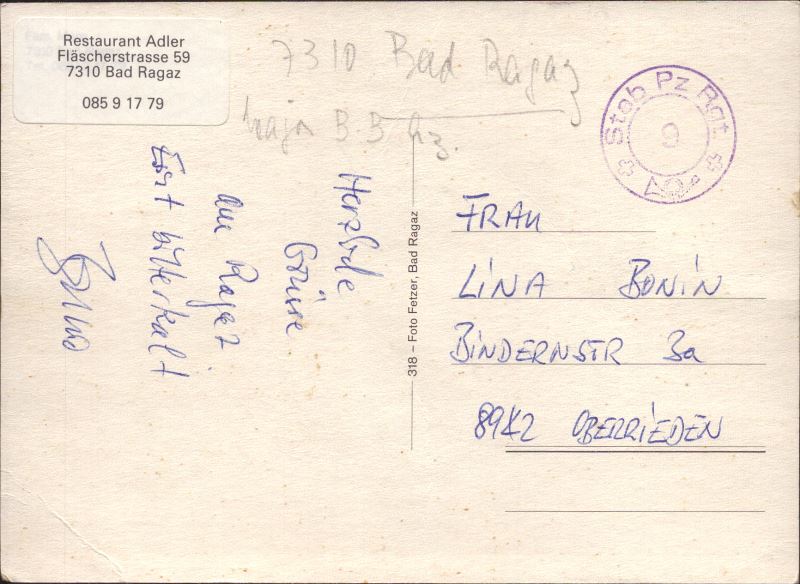 Restaurant Adler
Fläscherstrasse 59
7310 Bad Ragaz
085 9 17 79
7310 Bad Ragaz
Stab Pz Rgt
9
Herzliche
Grüsse
aus Ragaz
Es ist bitterkalt
Bruno
318 – Foto Fetzer, Bad Ragaz
FRAU
LINA BONIN
BINDERNSTR 3a
8942 OBERRIEDEN